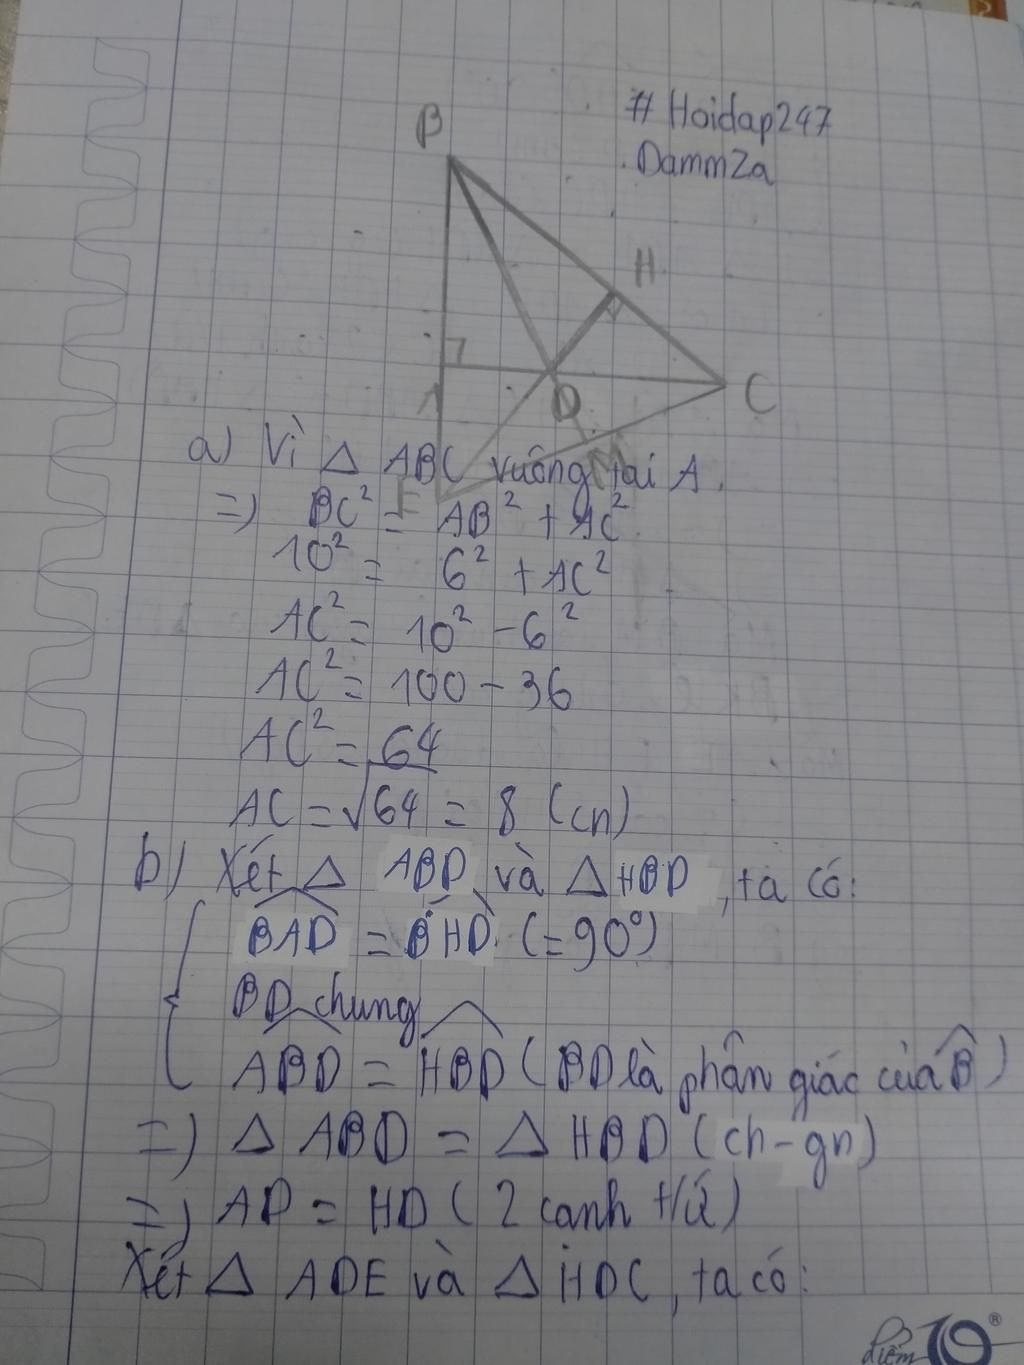 # Hoidap247
DammZa
B
H
A
D
C
E
M
a) Vì Δ ABC vuông tại A.
=) BC² = AB² + AC²
10² = 6² + AC²
AC² = 10² - 6²
AC² = 100 - 36
AC² = 64
AC = √64 = 8 (cm)
b) Xét Δ ABD và Δ HBD, ta có:
BAD = BHD (= 90°)
BD chung
ABD = HBD (BD là phân giác của B)
=) Δ ABD = Δ HBD (ch - gn)
=) AD = HD (2 cạnh t/ứ)
Xét Δ ADE và Δ HDC, ta có:
điểm 10®